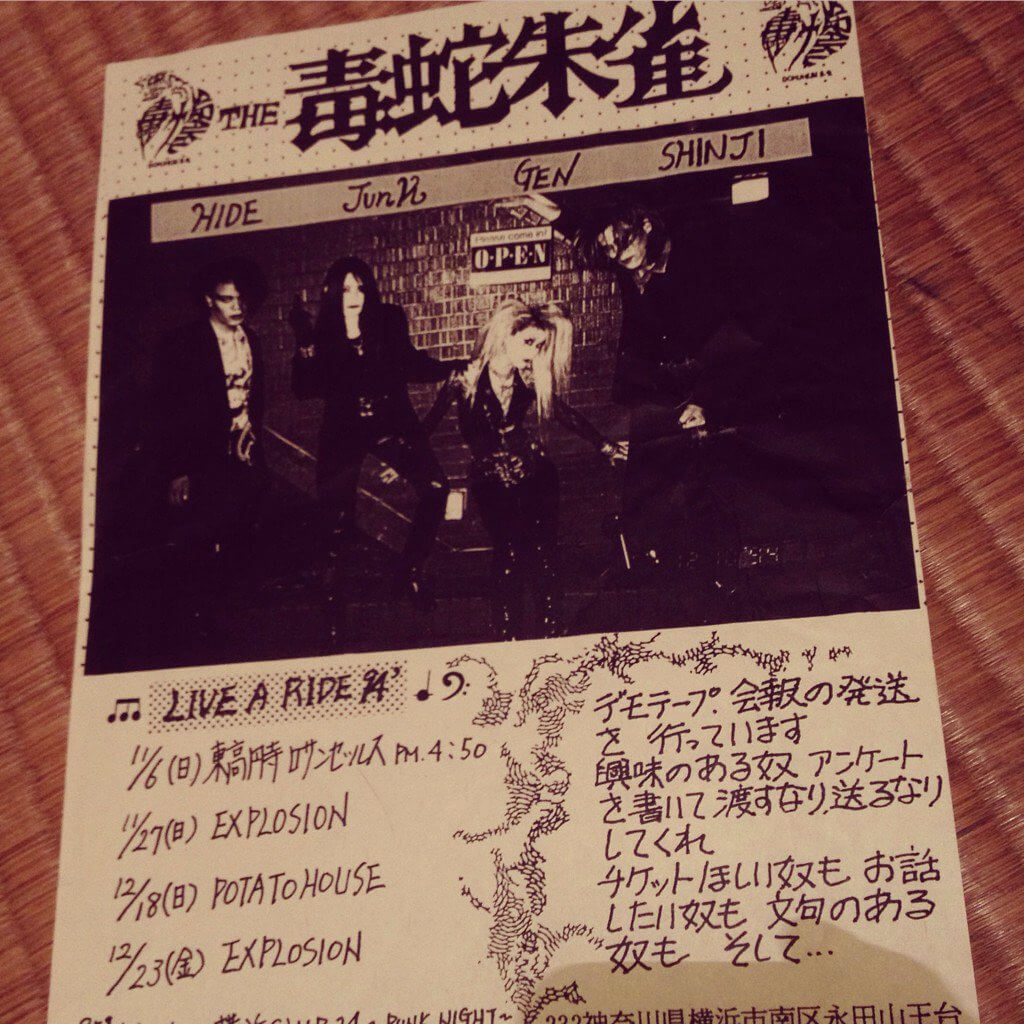 THE 毒蛇朱雀
HIDE Junn GEN SHINJI
Please come in!
O·P·E·N
LIVE A RIDE 94'
11/6(日)東高円寺ロサンゼルス PM.4:50
11/27(日) EXPLOSION
12/18(日) POTATO HOUSE
12/23(金) EXPLOSION
PUNK NIGHT~
デモテープ.会報の発送
を行っています
興味のある奴 アンケート
を書いて渡すなり,送るなり
してくれ
チケットほしい奴も お話
したい奴も 文句のある
奴も そして…
232神奈川県横浜市南区永田山王台